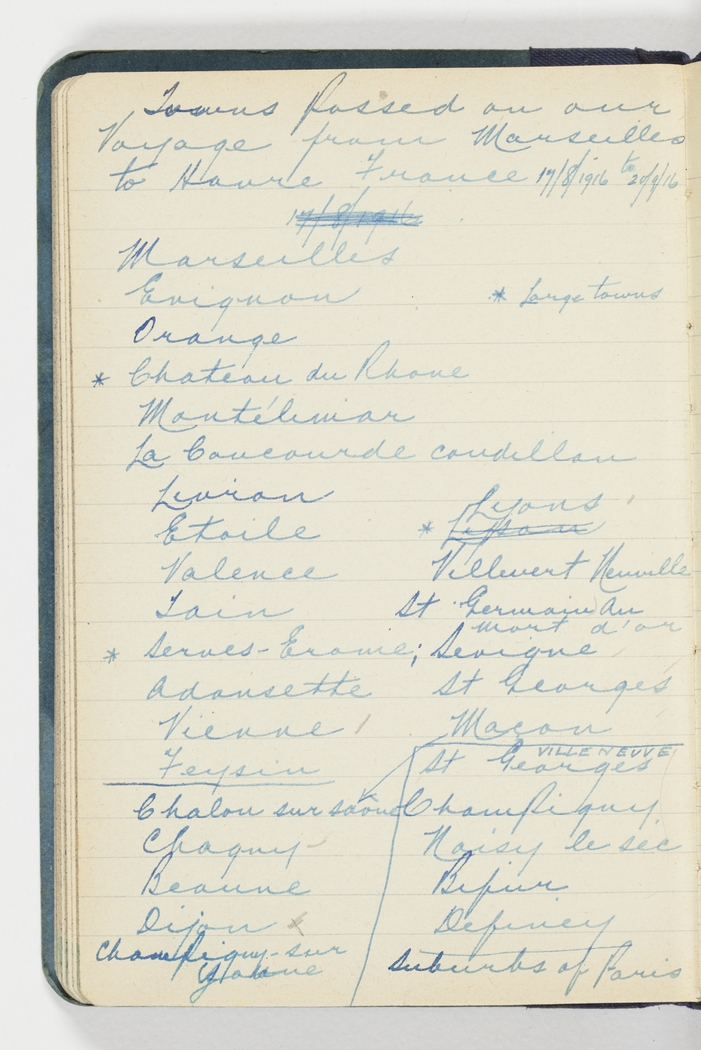 Towns passed on our
Voyage from Marseilles
to Havre France 17/8/1916 to 20/8/16
17/8/1916
Marseilles
Evignon
* Large towns
Orange
* Chateau du Rhone
Montélimar
La Concourde condillon
Livron
Etoile
Valence
Tain
* Serves-Erome;
Adansette
Vienne
Feysin
Lyons
*
Villevert Neuville
St Germain Au
mort d'or
Sevigne
St Georges
Macon
Chalon sur saône
Chagny
Beaune
Dijon x
Champigny-sur
Yonne
VILLENEUVE
St Georges
Champigny
Noisy le sec
Suburbs of Paris